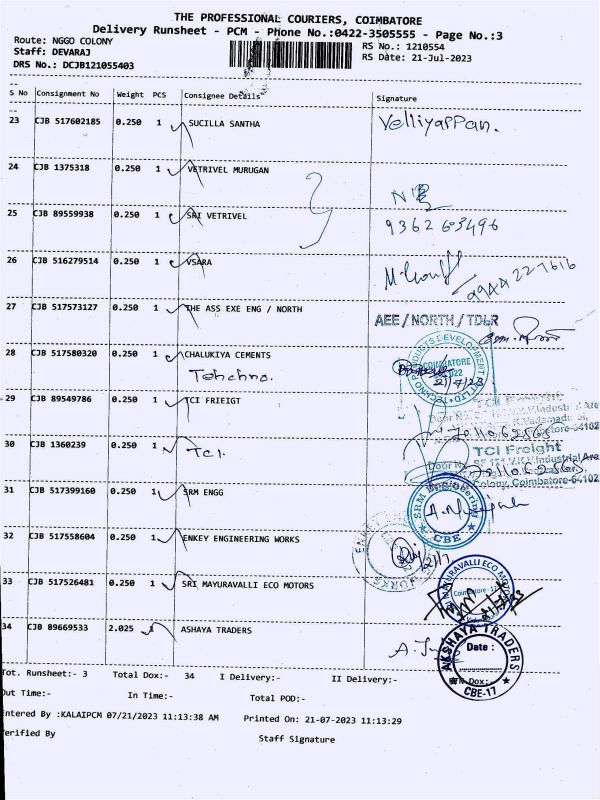 THE PROFESSIONAL COURIERS, COIMBATORE
Delivery Runsheet - PCM - Phone No.:0422-3505555 - Page No.:3
Route: NGGO COLONY RS No.: 1210554
Staff: DEVARAJ RS Date: 21-Jul-2023
DRS No.: DCJB121055403
S No Consignment No Weight PCS Consignee Details Signature
23 CJB 517602185 0.250 1 SUCILLA SANTHA Velliyappan.
24 CJB 1375318 0.250 1 VETRIVEL MURUGAN
25 CJB 89559938 0.250 1 SRI VETRIVEL
9362603496
26 CJB 516279514 0.250 1 VSARA
9944227616
27 CJB 517573127 0.250 1 THE ASS EXE ENG / NORTH AEE / NORTH / TDLR
28 CJB 517580320 0.250 1 CHALUKIYA CEMENTS COIMBATORE
Tehchno. 21/7/23
29 CJB 89549786 0.250 1 TCI FRIEIGT
30 CJB 1360239 0.250 1 TCI. TCI Freight
V.K.V.Industrial Are
Colony, Coimbatore-64102
31 CJB 517399160 0.250 1 SRM ENGG SRM Engineering
CBE
32 CJB 517558604 0.250 1 ENKEY ENGINEERING WORKS
21/7
33 CJB 517526481 0.250 1 SRI MAYURAVALLI ECO MOTORS MAYURAVALLI ECO MOTORS
34 CJB 89669533 2.025 1 ASHAYA TRADERS
AKSHAYA TRADERS
Date :
CBE-17
Tot. Runsheet:- 3 Total Dox:- 34 I Delivery:- II Delivery:- Dox:-
Out Time:- In Time:- Total POD:-
Entered By :KALAIPCM 07/21/2023 11:13:38 AM Printed On: 21-07-2023 11:13:29
Verified By Staff Signature